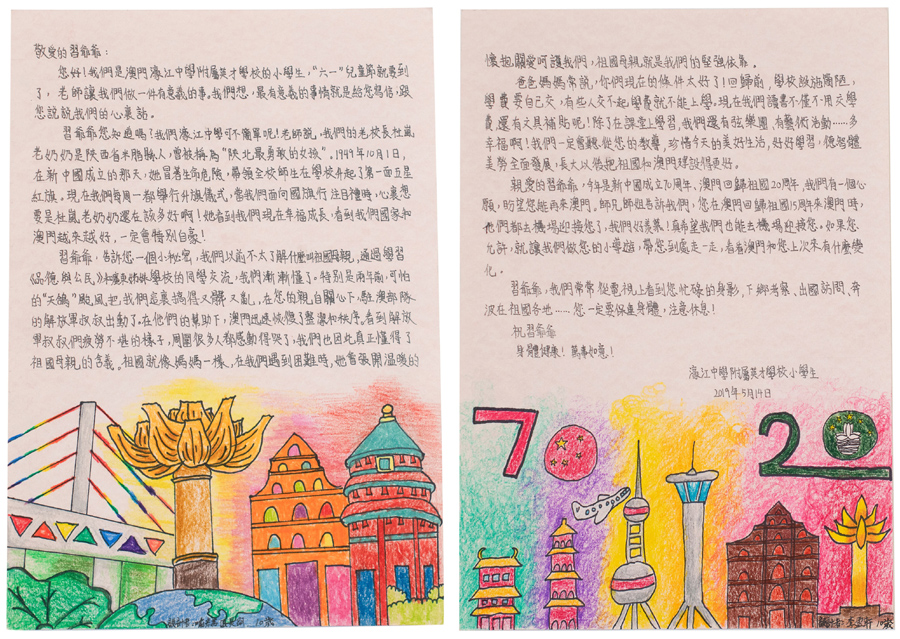 敬愛的習爺爺：
您好！我們是澳門濠江中學附屬英才學校的小學生，“六一”兒童節就要到
了，老師讓我們做一件有意義的事。我們想，最有意義的事情就是給您寫信，跟
您說說我們的心裏話。
習爺爺您知道嗎？我們濠江中學可不簡單呢！老師說，我們的老校長杜嵐
老奶奶是陝西省米脂縣人，曾被稱為“陝北最勇敢的女孩”。1949年10月1日，
在新中國成立的那天，她冒著生命危險，帶領全校師生在學校升起了第一面五星
紅旗。現在我們每周一都舉行升旗儀式，當我們面向國旗行注目禮時，心裏想
要是杜嵐老奶奶還在該多好啊！她看到我們現在幸福成長，看到我們國家和
澳門越來越好，一定會特別自豪！
習爺爺，告訴您一個小秘密，我們以前不太了解什麼叫祖國母親，通過學習
《品德與公民》和姊妹學校的同學交流，我們漸漸懂了。特別是兩年前，可怕
的“天鴿”颱風把我們家裏搞得又髒又亂，在您的親自關心下，駐澳部隊
的解放軍叔叔出動了。在他們的幫助下，澳門迅速恢復了整潔和秩序。看到解放
軍叔叔們疲勞不堪的樣子，周圍很多人都感動得哭了，我們也因此真正懂得了
祖國母親的含義。祖國就像媽媽一樣，在我們遇到困難時，她會張開溫暖的
懷抱關愛呵護我們，祖國母親就是我們的堅強依靠。
爸爸媽媽常說，你們現在的條件太好了！回歸前，學校設施簡陋，
學費要自己交，有些人交不起學費就不能上學。現在我們讀書不僅不用交學
費，還有文具補貼呢！除了在課堂上學習，我們還有弦樂團，有藝術活動……多
幸福啊！我們一定會聽從您的教導，珍惜今天的美好生活，好好學習，德智體
美勞全面發展，長大以後把祖國和澳門建設得更好。
親愛的習爺爺，今年是新中國成立70周年、澳門回歸祖國20周年，我們有一個心
願，盼望您能再來澳門。師兄師姐告訴我們，您在澳門回歸祖國15周年來澳門時，
他們都去機場迎接您了，我們好羨慕！真希望我們也能去機場迎接您。如果您
允許，就讓我們做您的小導遊，帶您到處走一走，看看澳門和您上次來有什麼變
化。
習爺爺，我們常常從電視上看到您忙碌的身影，下鄉考察、出國訪問、奔
波在祖國各地……您一定要保重身體，注意休息！
祝習爺爺
身體健康！萬事如意！
濠江中學附屬英才學校小學生
2019年5月14日
70
20
10歲